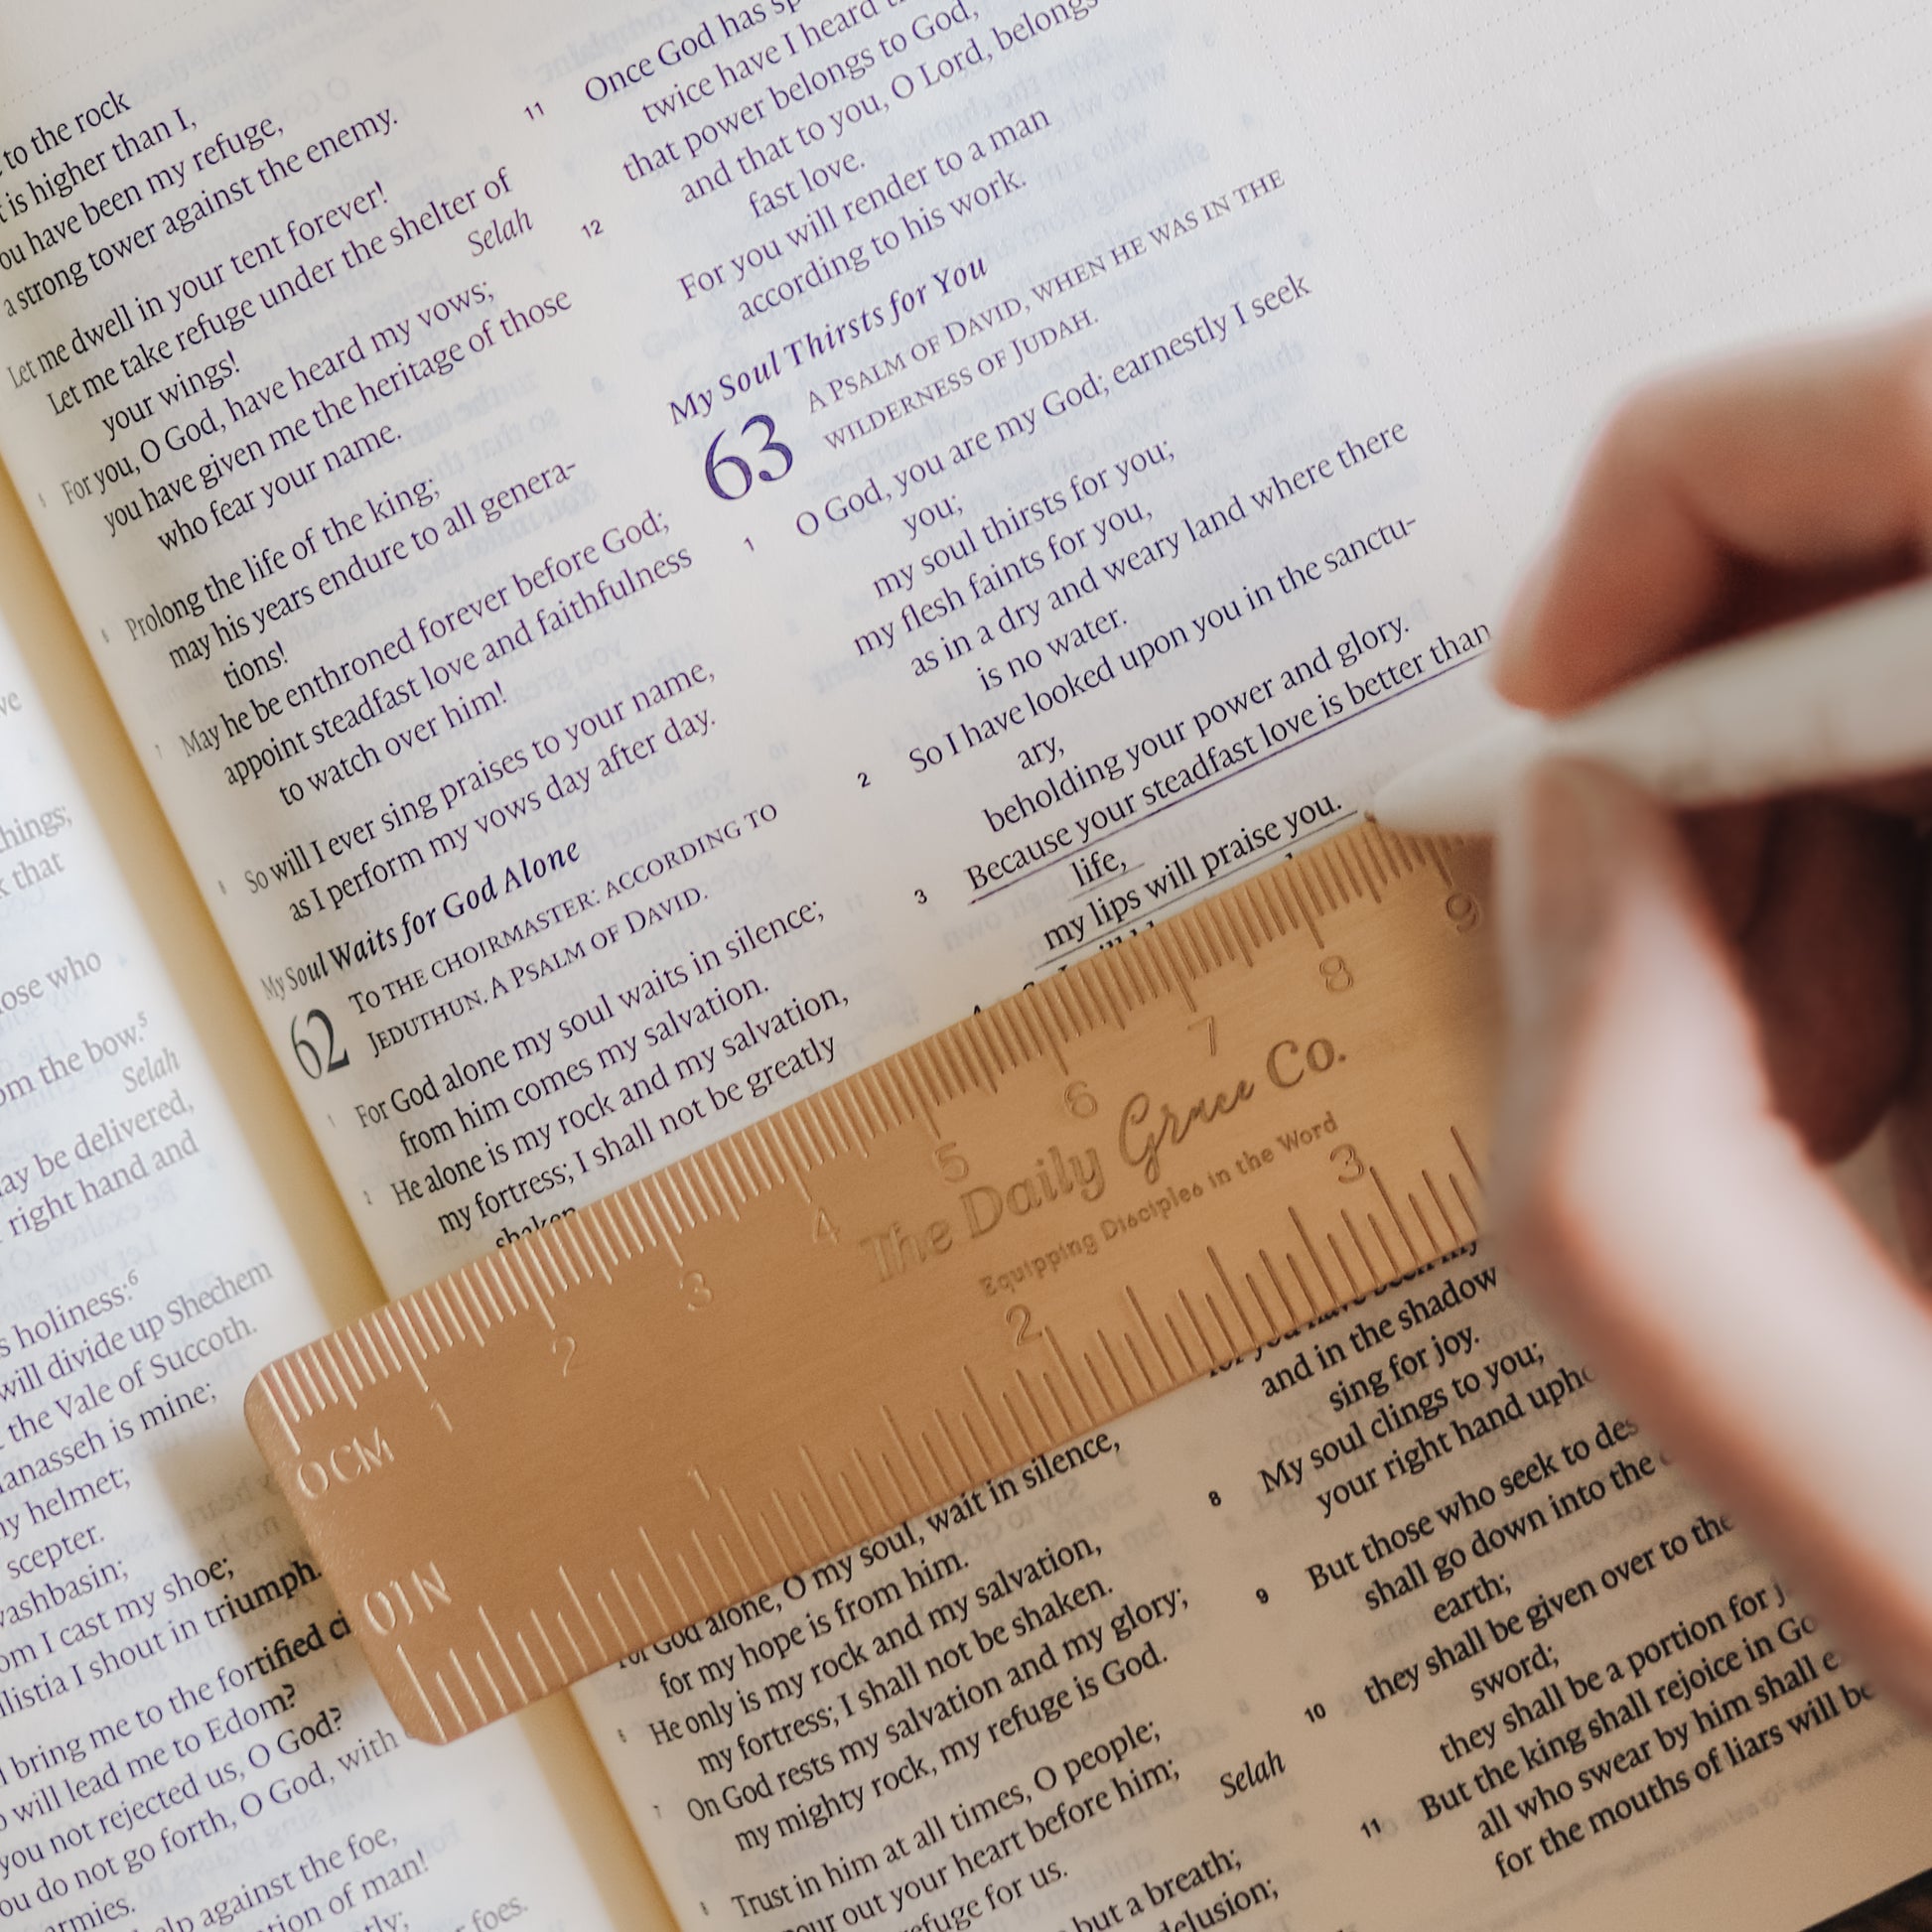 ve
hings;
k that
ose who
om the bow.5
Selah
ay be delivered,
right hand and
s holiness:6
will divide up Shechem
the Vale of Succoth.
anasseh is mine;
y helmet;
scepter.
vashbasin;
om I cast my shoe;
llistia I shout in triumph.
l bring me to the fortified ci
o will lead me to Edom?
you not rejected us, O God?
ou do not go forth, O God, with
armies.
elp against the foe,
tion of man!
tly;
r foes.
to the rock
t is higher than I,
ou have been my refuge,
a strong tower against the enemy.
Let me dwell in your tent forever!
Let me take refuge under the shelter of
your wings! Selah
5 For you, O God, have heard my vows;
you have given me the heritage of those
who fear your name.
6 Prolong the life of the king;
may his years endure to all genera-
tions!
7 May he be enthroned forever before God;
appoint steadfast love and faithfulness
to watch over him!
8 So will I ever sing praises to your name,
as I perform my vows day after day.
My Soul Waits for God Alone
62 TO THE CHOIRMASTER: ACCORDING TO
JEDUTHUN. A PSALM OF DAVID.
1 For God alone my soul waits in silence;
from him comes my salvation.
2 He alone is my rock and my salvation,
my fortress; I shall not be greatly
shaken
For God alone, O my soul, wait in silence,
for my hope is from him.
6 He only is my rock and my salvation,
my fortress; I shall not be shaken.
7 On God rests my salvation and my glory;
my mighty rock, my refuge is God.
8 Trust in him at all times, O people;
pour out your heart before him;
refuge for us. Selah
but a breath;
delusion;
11 Once God has sp
twice have I heard t
that power belongs to God,
and that to you, O Lord, belongs
fast love.
12 For you will render to a man
according to his work.
My Soul Thirsts for You
63 A PSALM OF DAVID, WHEN HE WAS IN THE
WILDERNESS OF JUDAH.
1 O God, you are my God; earnestly I seek
you;
my soul thirsts for you;
my flesh faints for you,
as in a dry and weary land where there
is no water.
2 So I have looked upon you in the sanctu-
ary,
beholding your power and glory.
3 Because your steadfast love is better than
life,
my lips will praise you.
for you have been my
and in the shadow
sing for joy.
8 My soul clings to you;
your right hand upho
9 But those who seek to des
shall go down into the
earth;
10 they shall be given over to the
sword;
they shall be a portion for j
11 But the king shall rejoice in Go
all who swear by him shall e
for the mouths of liars will be
0 CM 1 2 3 4 5 6 7 8 9
The Daily Grace Co.
Equipping Disciples in the Word
0 IN 1 2 3